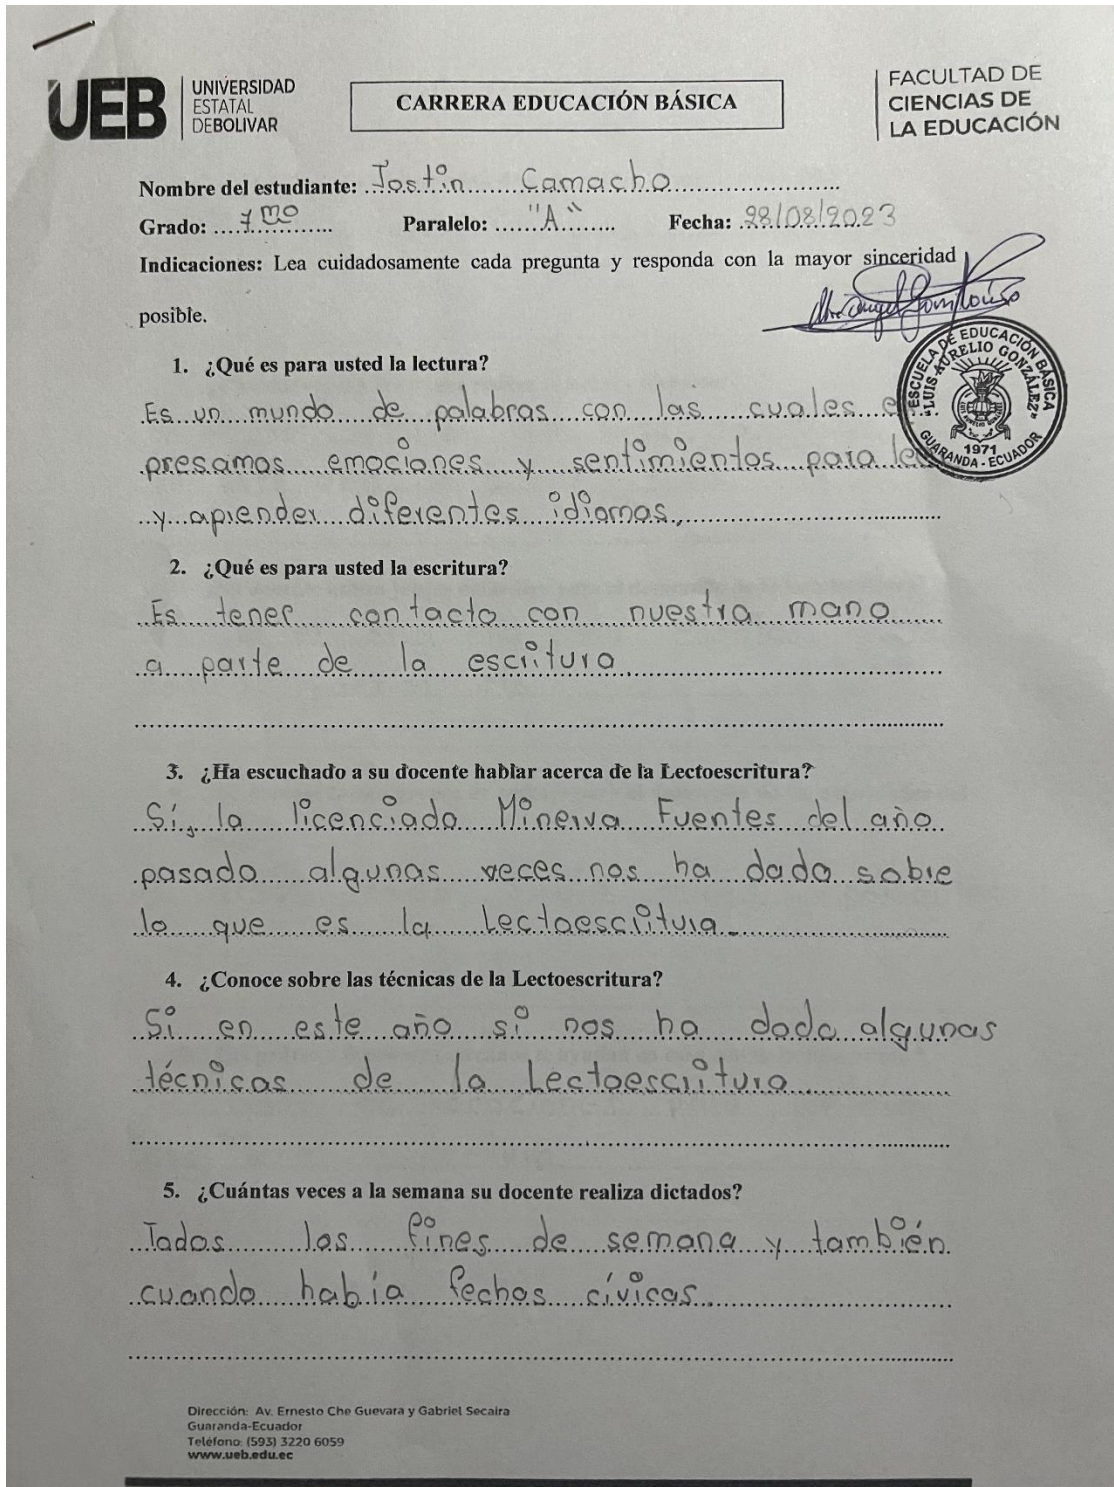 UEB
UNIVERSIDAD
ESTATAL
DEBOLIVAR
CARRERA EDUCACIÓN BÁSICA
FACULTAD DE
CIENCIAS DE
LA EDUCACIÓN
Nombre del estudiante: Jostin Camacho
Grado: 7mo Paralelo: "A" Fecha: 28/08/2023
Indicaciones: Lea cuidadosamente cada pregunta y responda con la mayor sinceridad
posible.
ESCUELA DE EDUCACIÓN BÁSICA
"LUIS AURELIO GONZÁLEZ"
1971
GUARANDA - ECUADOR
1. ¿Qué es para usted la lectura?
Es un mundo de palabras con las cuales
presamos emociones y sentimientos para
y aprender diferentes idiomas,
2. ¿Qué es para usted la escritura?
Es tener contacto con nuestra mano
a parte de la escritura
3. ¿Ha escuchado a su docente hablar acerca de la Lectoescritura?
Sí, la licenciada Minerva Fuentes del año
pasado algunas veces nos ha dado sobre
lo que es la Lectoescritura
4. ¿Conoce sobre las técnicas de la Lectoescritura?
Si en este año si nos ha dado algunas
técnicas de la Lectoescritura
5. ¿Cuántas veces a la semana su docente realiza dictados?
Todos los fines de semana y también
cuando había fechas cívicas
Dirección: Av. Ernesto Che Guevara y Gabriel Secaira
Guaranda-Ecuador
Teléfono: (593) 3220 6059
www.ueb.edu.ec